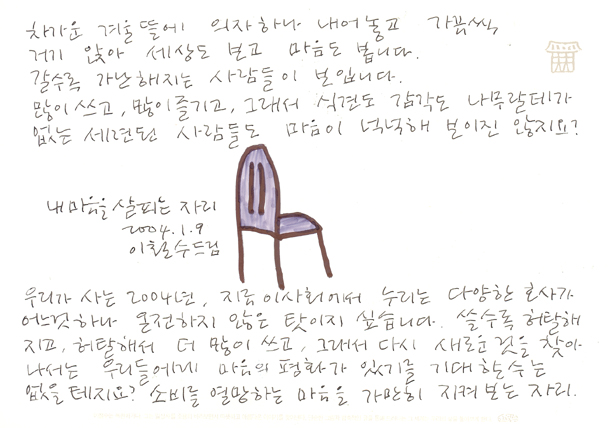 차가운 겨울 뜰에 의자 하나 내어놓고 가끔씩
거기 앉아 세상도 보고 마음도 봅니다.
갈수록 가난해지는 사람들이 보입니다.
많이 쓰고, 많이 즐기고, 그래서 식견도 감각도 나무랄데가
없는 세련된 사람들도 마음이 넉넉해 보이진 않지요?
내 마음을 살피는 자리
2004.1.9
이철수드림
우리가 사는 2004년, 지금 이 사회에서 누리는 다양한 호사가
어느것하나 온전하지 않은 탓이지 싶습니다. 쓸수록 허탈해
지고, 허탈해서 더 많이 쓰고, 그래서 다시 새로운 것을 찾아
나서는 우리들에게 마음의 평화가 있기를 기대할 수는
없을테지요? 소비를 열망하는 마음을 가만히 지켜보는 자리.